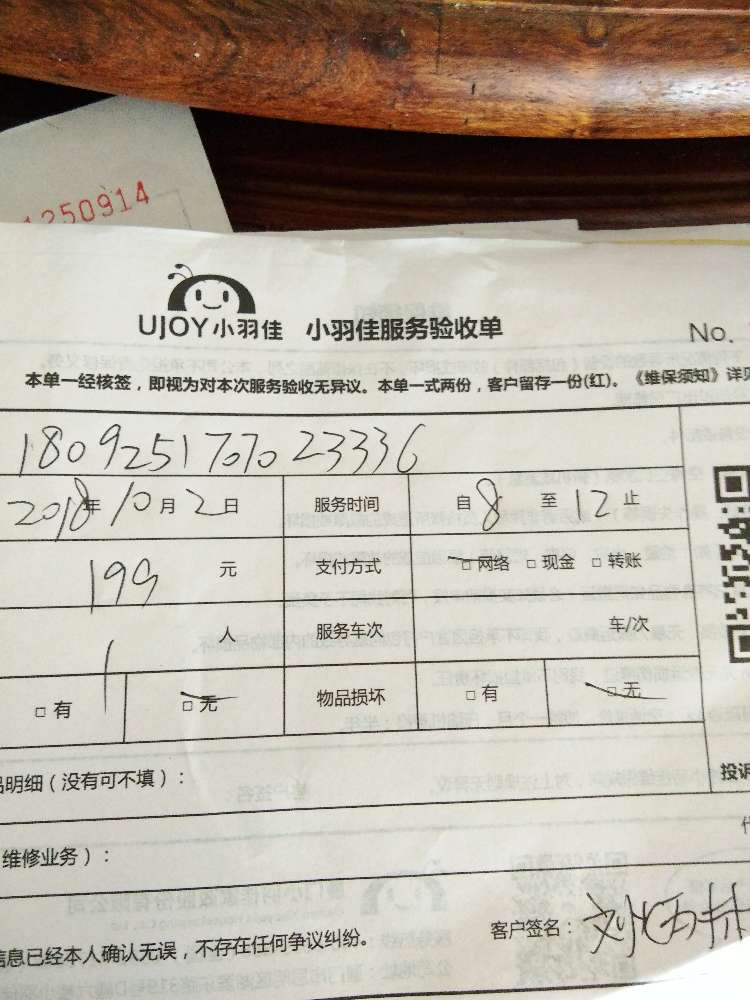 1250914
UJOY小羽佳 小羽佳服务验收单
No.
本单一经核签，即视为对本次服务验收无异议。本单一式两份，客户留存一份(红)。《维保须知》详见
1809251707023336
2018年10月2日 服务时间 自8至12止
199元 支付方式 □网络 □现金 □转账
1人 服务车次 车/次
□有 □无 物品损坏 □有 □无
投诉
品明细（没有可不填）：
维修业务）：
信息已经本人确认无误，不存在任何争议纠纷。 客户签名：